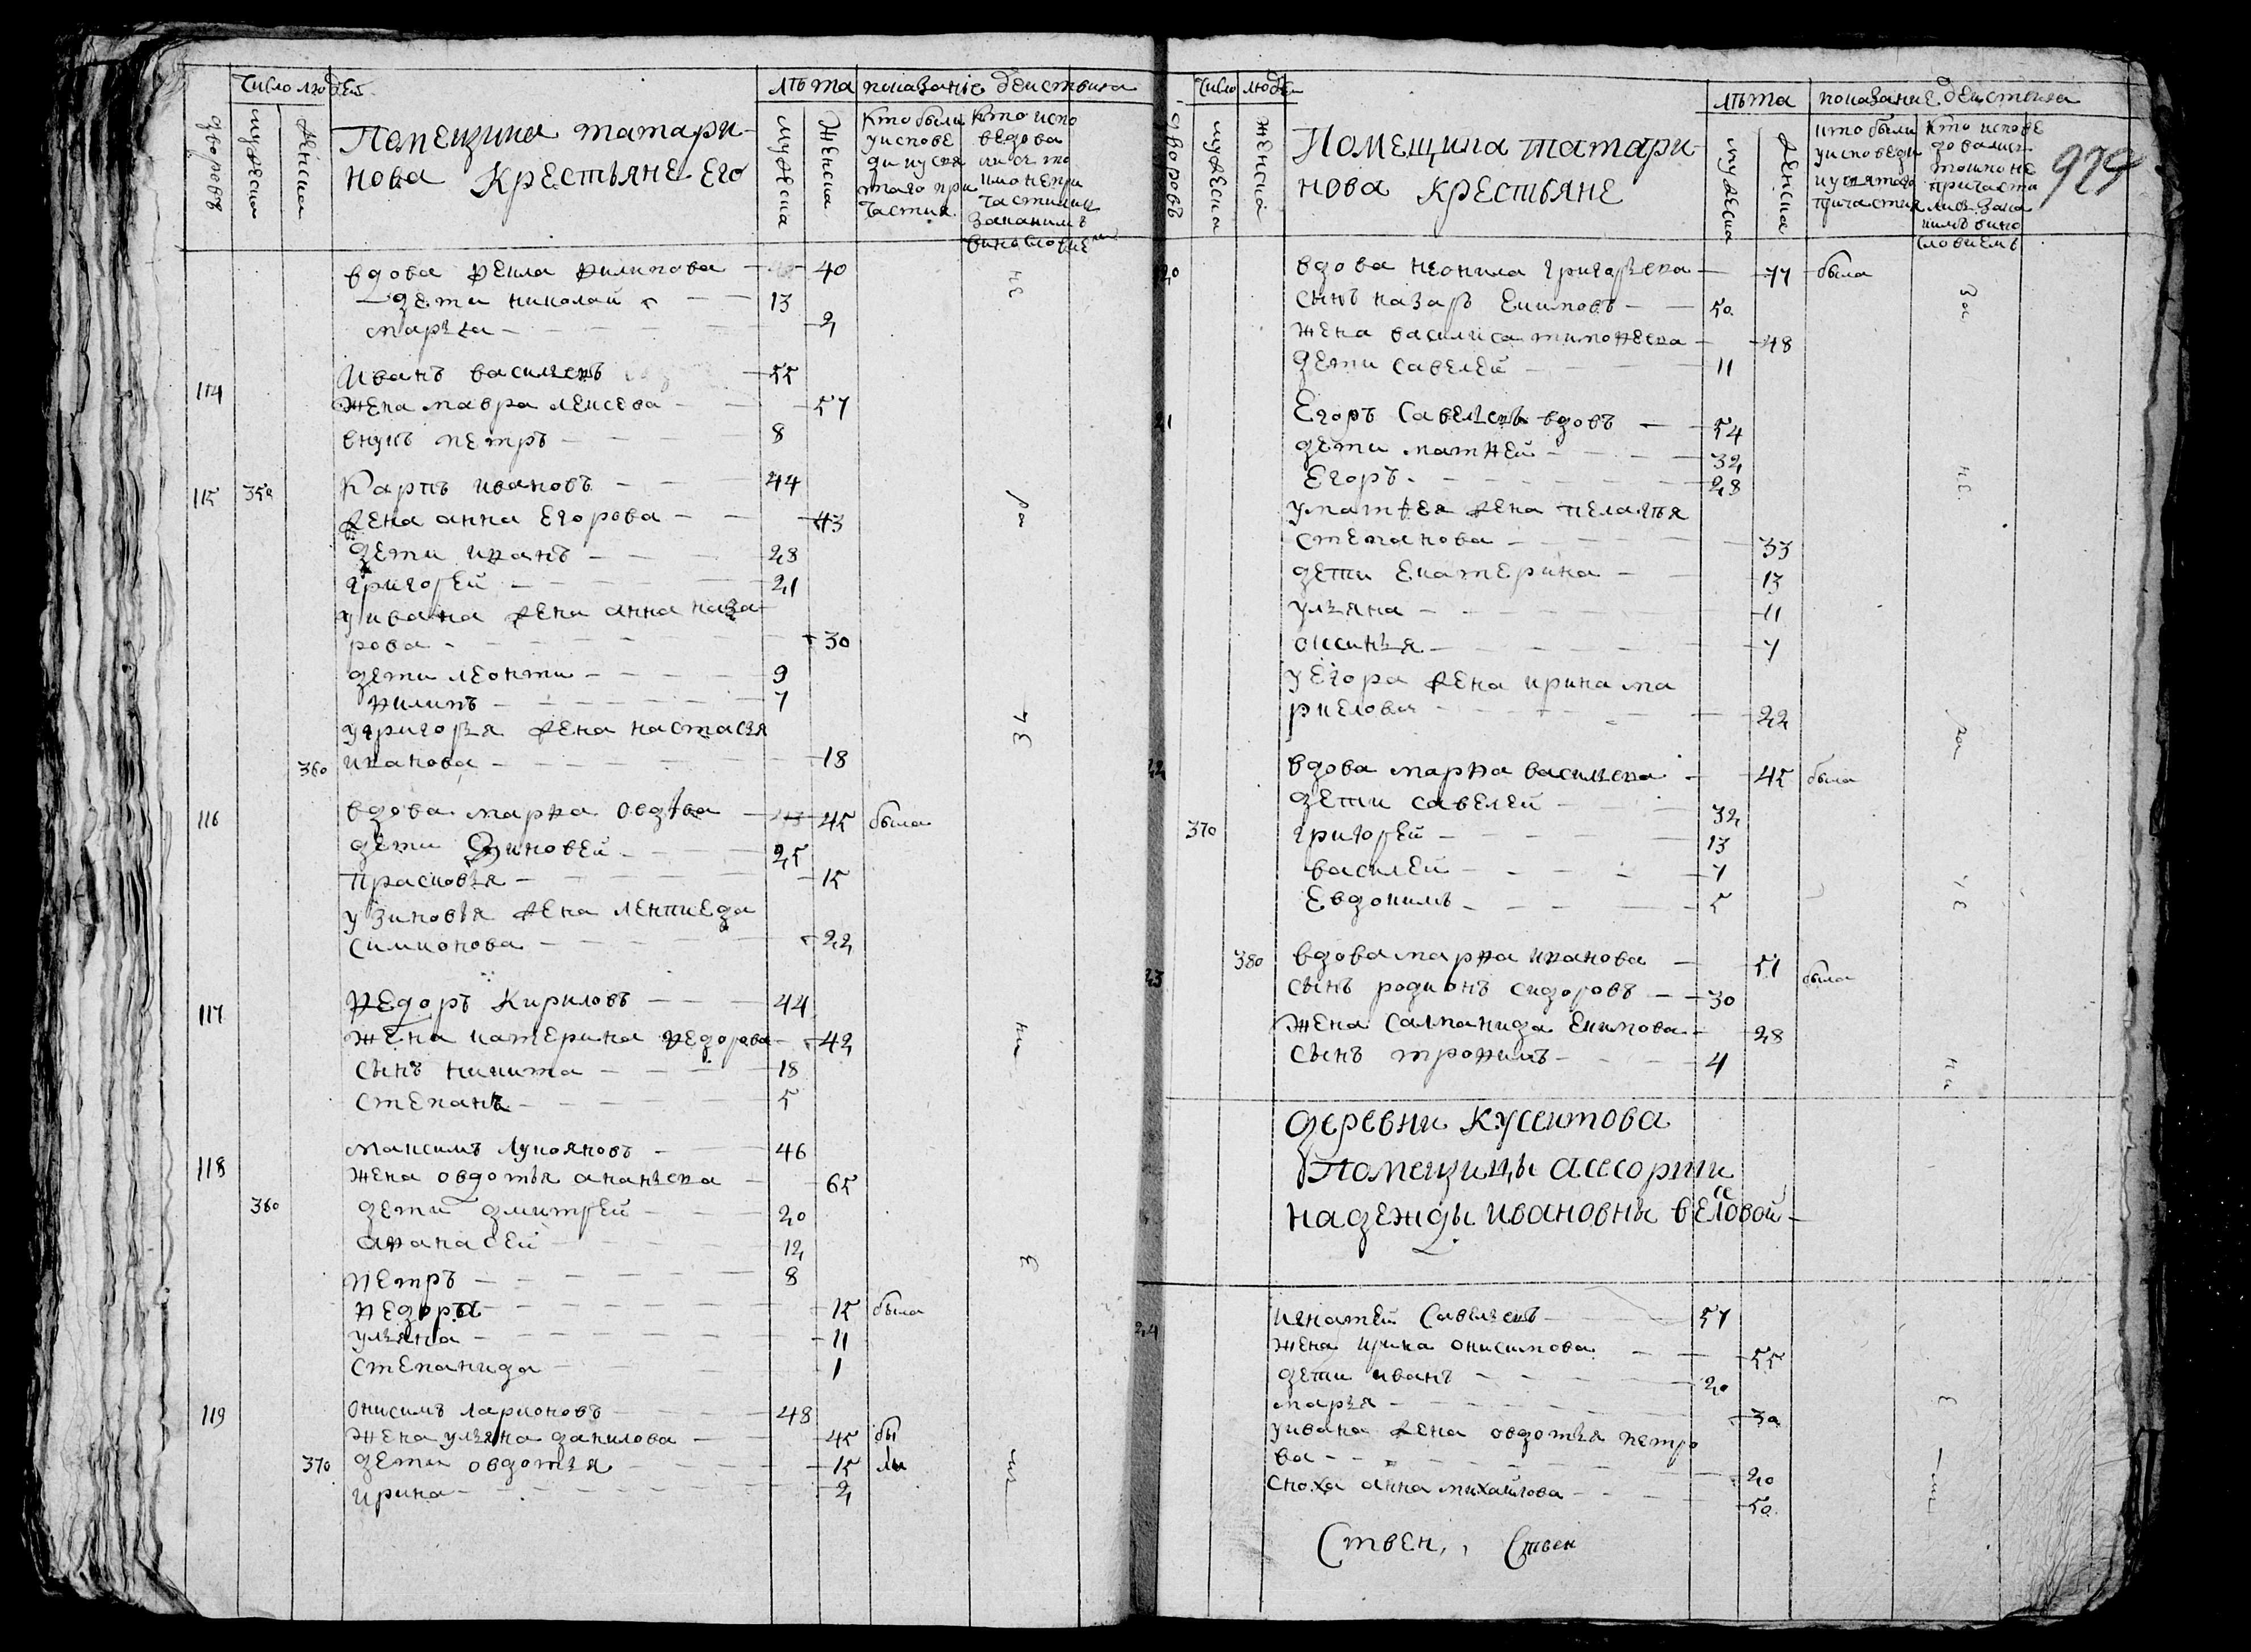 число людей
лѣта показаніе действиа
дворовъ
мужеска
женска
Помещика татари-
нова Крестьяне его
мужеска
женска
кто были
уиспове
ди иусвя
таго при
частия
кто испо
ведова
лисъ то
лко непри
частились
закакимъ
винословием
вдова Фекла Филипова 40
дети николай 13
марья 2
114 Иванъ васильевъ 55
жена мавра лексева 57
внукъ петръ 8
115 Карпъ ивановъ 44
жена анна Егорова 43
дети иванъ 28
григорей 21
уивана жена анна наза
рова 30
дети леонти 9
филипъ 7
угригорья жена настасья
360 иванова 18
116 вдова марфа 45 была
дети Зиновей 25
прасковья 15
узиновья жена
симионова 22
117 Федоръ Кириловъ 44
жена катерина федорова 42
сынъ никита 18
степанъ 5
118 максимъ лукояновъ 46
жена овдотья ананьева 65
360 дети дмитрей 20
афанасей 12
петръ 8
федора 15 была
ульяна 11
степанида 1
119 онисимъ ларионовъ 48
жена ульяна данилова 45 бы
370 дети овдотья 15 ли
ирина 2
число людеи
лѣта показание действиа
дворовъ
мужеска
женска
Помещика татари-
нова крестьяне
мужеска
женска
кто были
уисповеди
иусвятаго
причастия
кто испове
довалис
толко не
причасти
лись зака
кимъ вино
словиемъ
979
20 вдова неонила григорьева 77 была
сынъ назаръ Екимовъ 50
жена василиса тимофеева 48
дети савелей 11
21 Егоръ Савельевъ вдовъ 54
дети матфей 32
Егоръ 28
уматфея жена пелагѣя
степанова 33
дети Екатерина 13
ульяна 11
оксинья 7
уЕгора жена ирина
22
22 вдова марфа васильева 45 была
дети савелей 32
370 григорей 13
василей 7
Евдокимъ 5
380 вдова марфа иванова 57
23 была
сынъ родионъ сидоровъ 30
жена саламанида Екимова 28
сынъ трофимъ 4
деревни Кусеитова
Помещицы асесорши
надежды ивановны
24 игнатей Савельевъ 57
жена ирина онисимова 55
дети иванъ 20
марья 30
уивана жена овдотья петро
ва 20
сноха анна михаилова 50
Ствен, Ствен